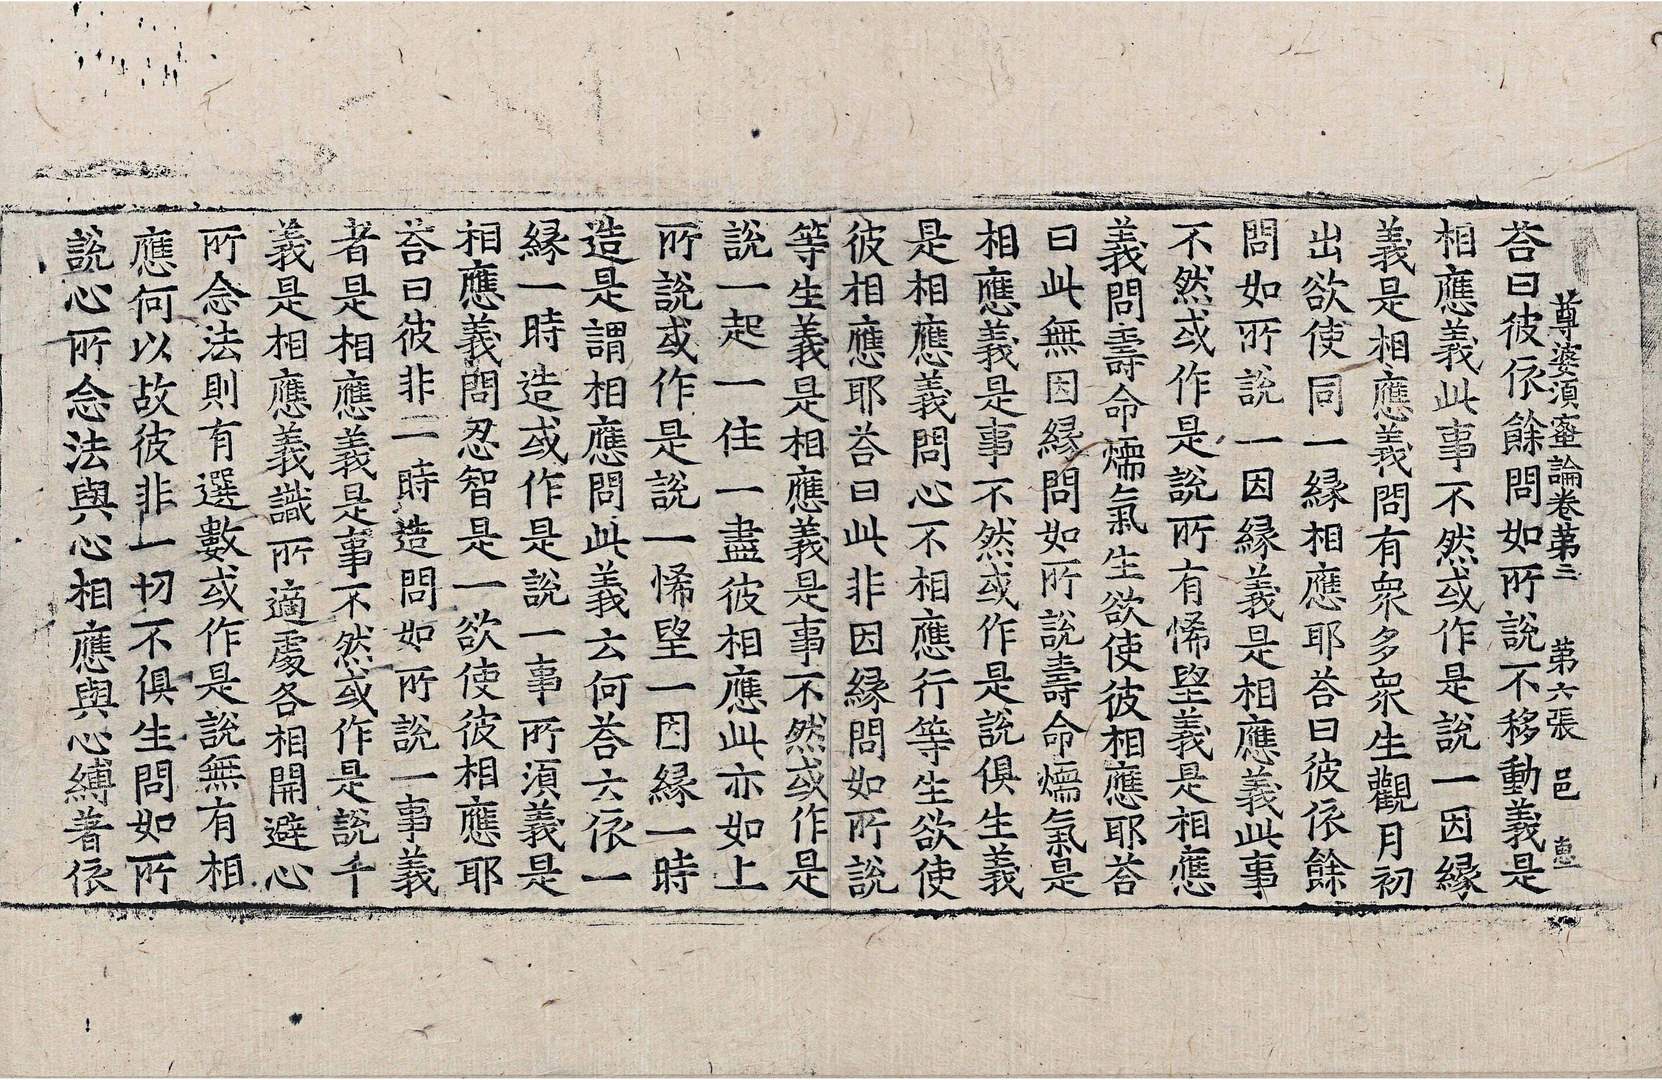 尊婆須蜜論卷第三　第六張　邑　惠
荅曰彼依餘問如所說不移動義是
相應義此事不然或作是說一因縁
義是相應義問有衆多衆生觀月初
出欲使同一縁相應耶荅曰彼依餘
問如所說一因縁義是相應義此事
不然或作是說所有悕望義是相應
義問壽命煗氣生欲使彼相應耶荅
曰此無因縁問如所說壽命煗氣是
相應義是事不然或作是說俱生義
是相應義問心不相應行等生欲使
彼相應耶荅曰此非因縁問如所說
等生義是相應義是事不然或作是
說一起一住一盡彼相應此亦如上
所說或作是說一悕望一因縁一時
造是謂相應問此義云何荅六依一
縁一時造或作是說一事所須義是
相應義問忍智是一欲使彼相應耶
荅曰彼非二時造問如所說一事義
者是相應義是事不然或作是說千
義是相應義識所適處各相開避心
所念法則有選數或作是說無有相
應何以故彼非一切不俱生問如所
說心所念法與心相應與心縛著依